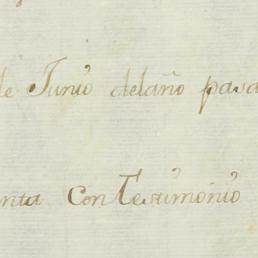 de Junio delaño pasa
nta con Testimonio